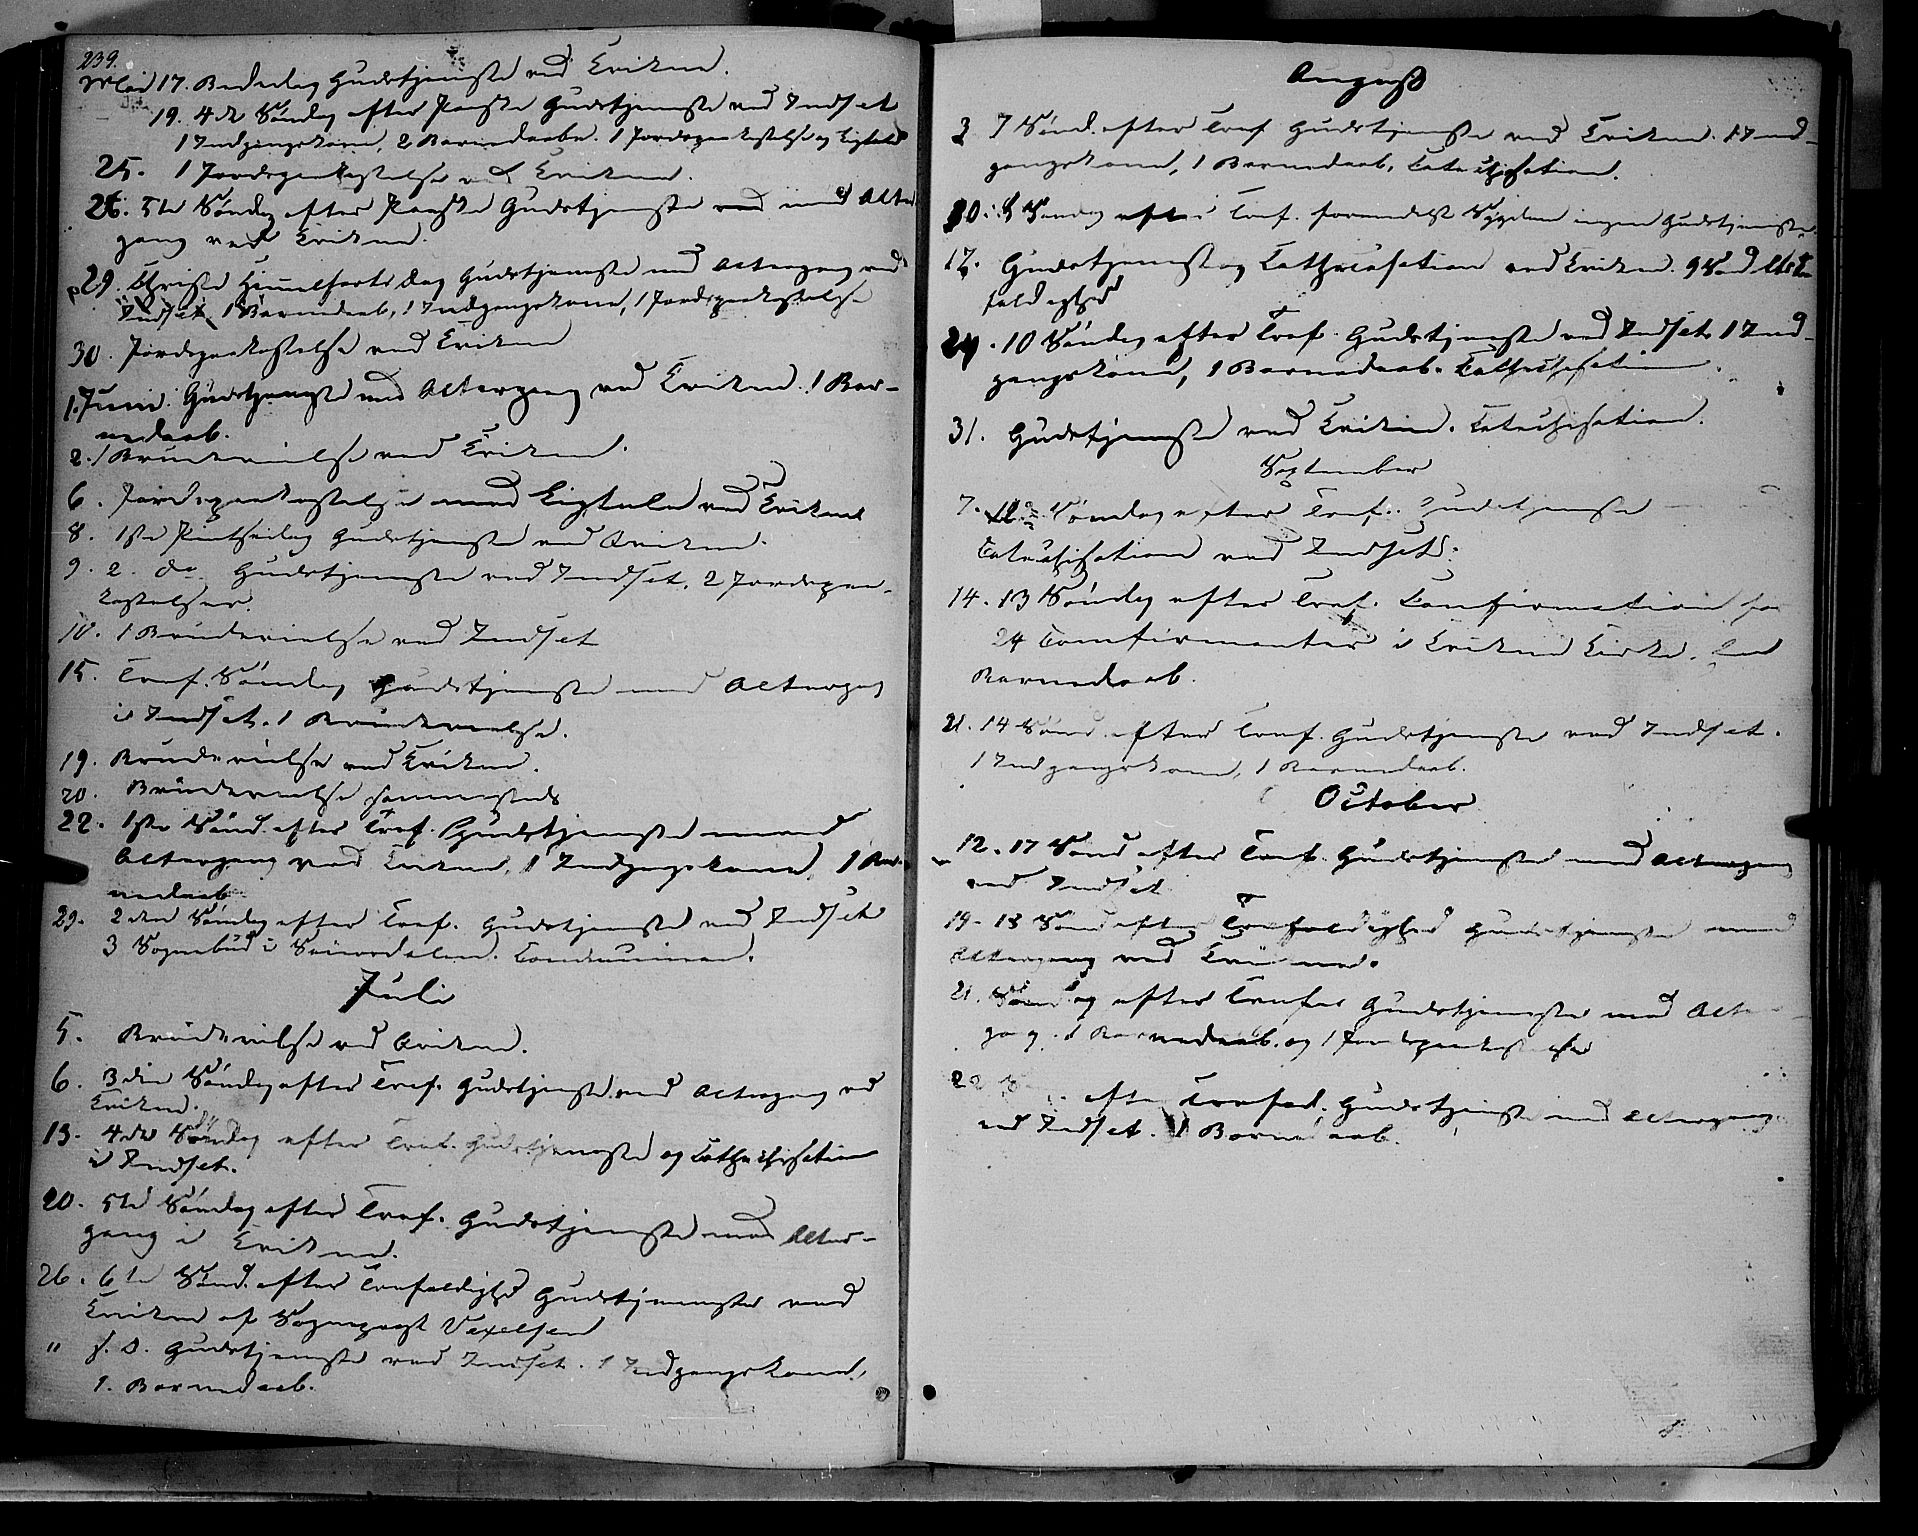 239.
Mai 17. Bededag Gudstjeneste ved Kvikne.
19. 4de Søndag efter Paaske Gudstjeneste ved Indset
1 Indgangskone, 2 Barnedaab. 1 Jordspaakastelse og Ligtale
25. 1 Jordspaakastelse ved Kvikne.
26. 5te Søndag efter Paaske Gudstjeneste med Alter
gang ved Kvikne.
29. Christi Himmelfarts Dag Gudstjeneste med Altergang ved
Indset, 1 Barnedaab, 1 Indgangskone, 1 Jordspaakastelse
30. Jordspaakastelse ved Kvikne
1. Juni. Gudstjeneste med Altergang ved Kvikne. 1 Bar-
nedaab.
2. 1 Brudevielse ved Kvikne.
6. Jordspaakastelse med Ligtale ved Kvikne
8. 1ste Pintsedag Gudstjeneste ved Kvikne.
9. 2. do Gudstjeneste ved Indset. 2 Jordspaa-
kastelser.
10. 1 Brudevielse ved Indset
15. Tref. Søndag Gudstjeneste med Altergang
i Indset. 1 Brudevielse.
19. Brudevielse ved Kvikne.
20. Brudevielse sammesteds
22. 1ste Sønd. efter Tref. Gudstjeneste med
Altergang ved Kvikne, 1 Indgangskone, 1 Bar-
nedaab.
29. 2den Søndag efter Tref. Gudstjeneste ved Indset
3 Sognebud i
Juli
5. Brudevielse ved Kvikne.
6. 3die Søndag efter Tref. Gudstjeneste med Altergang ved
Kvikne.
13. 4de Søndag efter Tref. Gudstjeneste og Cathechisation
i Indset.
20. 5te Søndag efter Tref. Gudstjeneste med Alter-
gang i Kvikne.
26. 6te Sønd. efter Trefoldighed Gudstjeneste ved
Kvikne af Sognepræst Vexelsen
" s. D. Gudstjeneste ved Indset. 1 Indgangskone,
1. Barnedaab.
August
3 7 Sønd. efter Tref Gudstjeneste ved Kvikne. 1 Ind-
gangskone, 1 Barnedaab, Catechisation.
10. 8 Søndag efter Tref. formedelst Sygdom ingen Gudstjeneste.
17. Gudstjeneste og Cathecisation ved Kvikne. 9 Sønd
foldighed
24. 10 Søndag efter Tref. Gudstjeneste ved Indset 1 Ind-
gangskone, 1 Barnedaab. Cathechisation.
31. Gudstjeneste ved Kvikne. Catechisation.
September
7. 12 Søndag efter Tref. Gudstjeneste
Catechisation ved Indset.
14. 13 Søndag efter Tref. Confirmation for
24 Confirmanter i Kvikne Kirke. En
Barnedaab.
21. 14 Sønd. efter Tref. Gudstjeneste ved Indset.
1 Indgangskone, 1 Barnedaab.
October
12. 17 Sønd efter Tref. Gudstjeneste med Altergang
ved Indset
19. 18 Sønd efter Trefoldighed Gudstjeneste med
Altergang ved Kvikne.
21. Søndag efter Trefol Gudstjeneste med Alter
gang. 1 Barnedaab. og 1 Jordspaakastelse
22 efter Trefol. Gudstjeneste med Altergang
ved Indset. 1 Barnedaab.